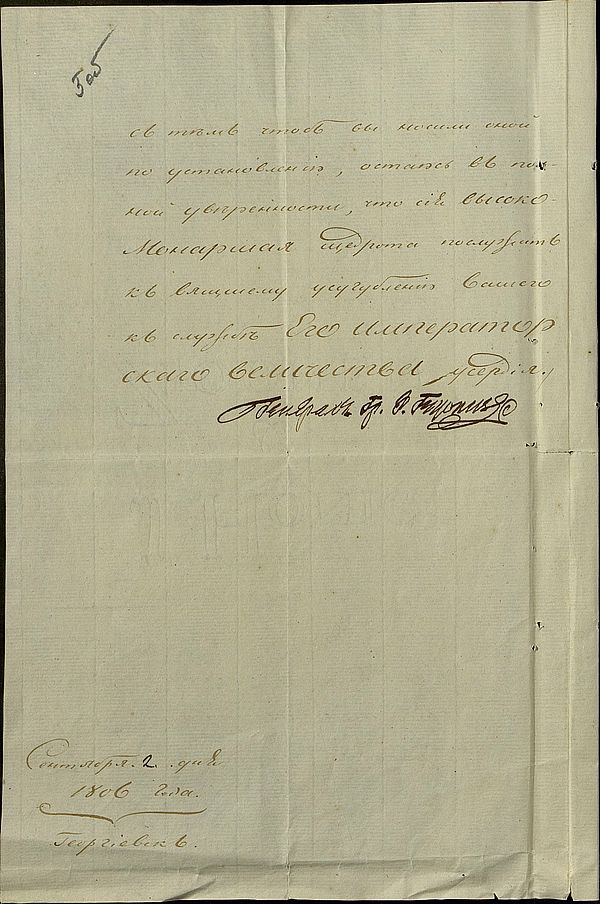 съ тѣмъ чтобъ вы носили оной
по установленію, остаюсь въ пол-
ной увѣренности, что сіѣ высоко-
Монаршая щедрота послужитъ
къ вящшему усугубленію вашего
къ службѣ Его император
скаго величества усердія.
Генералъ Гр. Гудовичь
Сентября. 2. дня
1806 года.
Георгіевскъ.